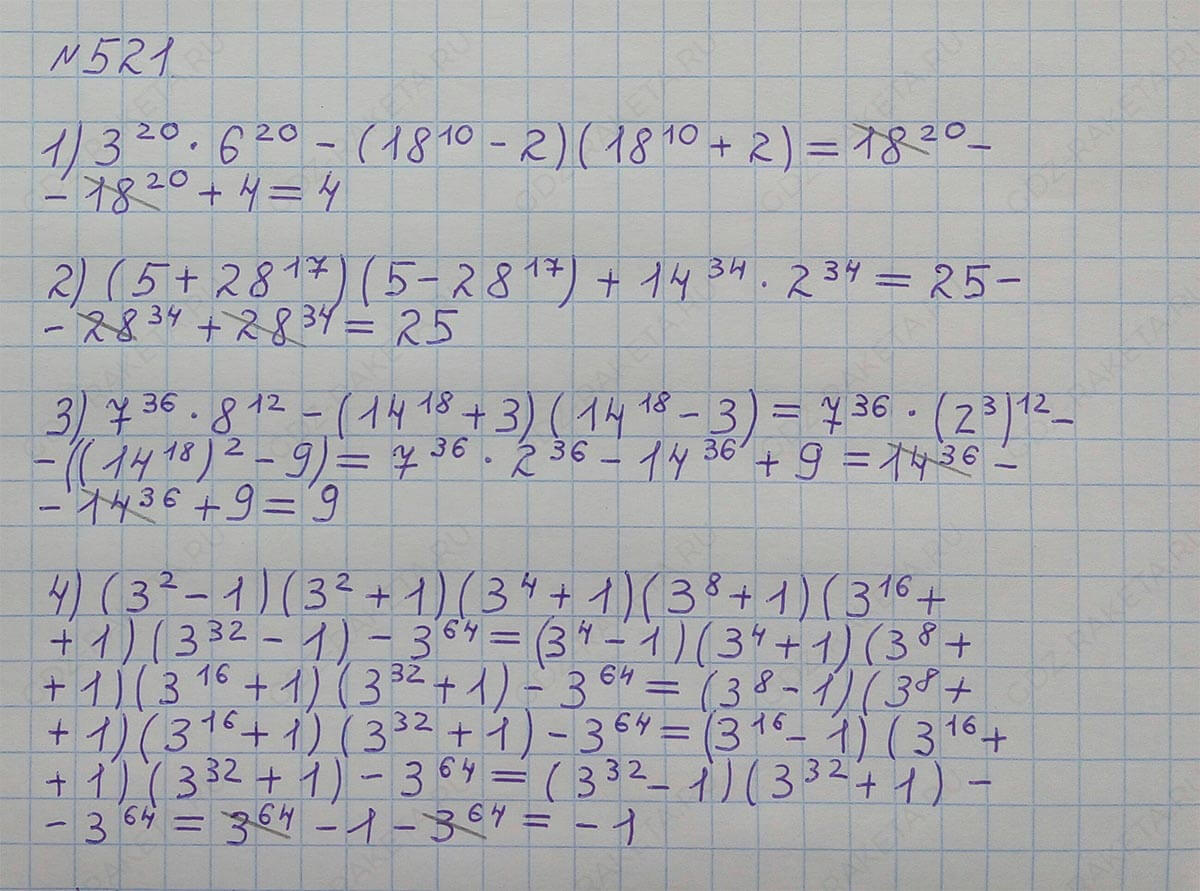 №521
1) 3²⁰ · 6²⁰ - (18¹⁰ - 2)(18¹⁰ + 2) = 18²⁰ -
- 18²⁰ + 4 = 4
2) (5 + 28¹⁷)(5 - 28¹⁷) + 14³⁴ · 2³⁴ = 25 -
- 28³⁴ + 28³⁴ = 25
3) 7³⁶ · 8¹² - (14¹⁸ + 3)(14¹⁸ - 3) = 7³⁶ · (2³)¹² -
- ((14¹⁸)² - 9) = 7³⁶ · 2³⁶ - 14³⁶ + 9 = 14³⁶ -
- 14³⁶ + 9 = 9
4) (3² - 1)(3² + 1)(3⁴ + 1)(3⁸ + 1)(3¹⁶ +
+ 1)(3³² - 1) - 3⁶⁴ = (3⁴ - 1)(3⁴ + 1)(3⁸ +
+ 1)(3¹⁶ + 1)(3³² + 1) - 3⁶⁴ = (3⁸ - 1)(3⁸ +
+ 1)(3¹⁶ + 1)(3³² + 1) - 3⁶⁴ = (3¹⁶ - 1)(3¹⁶ +
+ 1)(3³² + 1) - 3⁶⁴ = (3³² - 1)(3³² + 1) -
- 3⁶⁴ = 3⁶⁴ - 1 - 3⁶⁴ = - 1